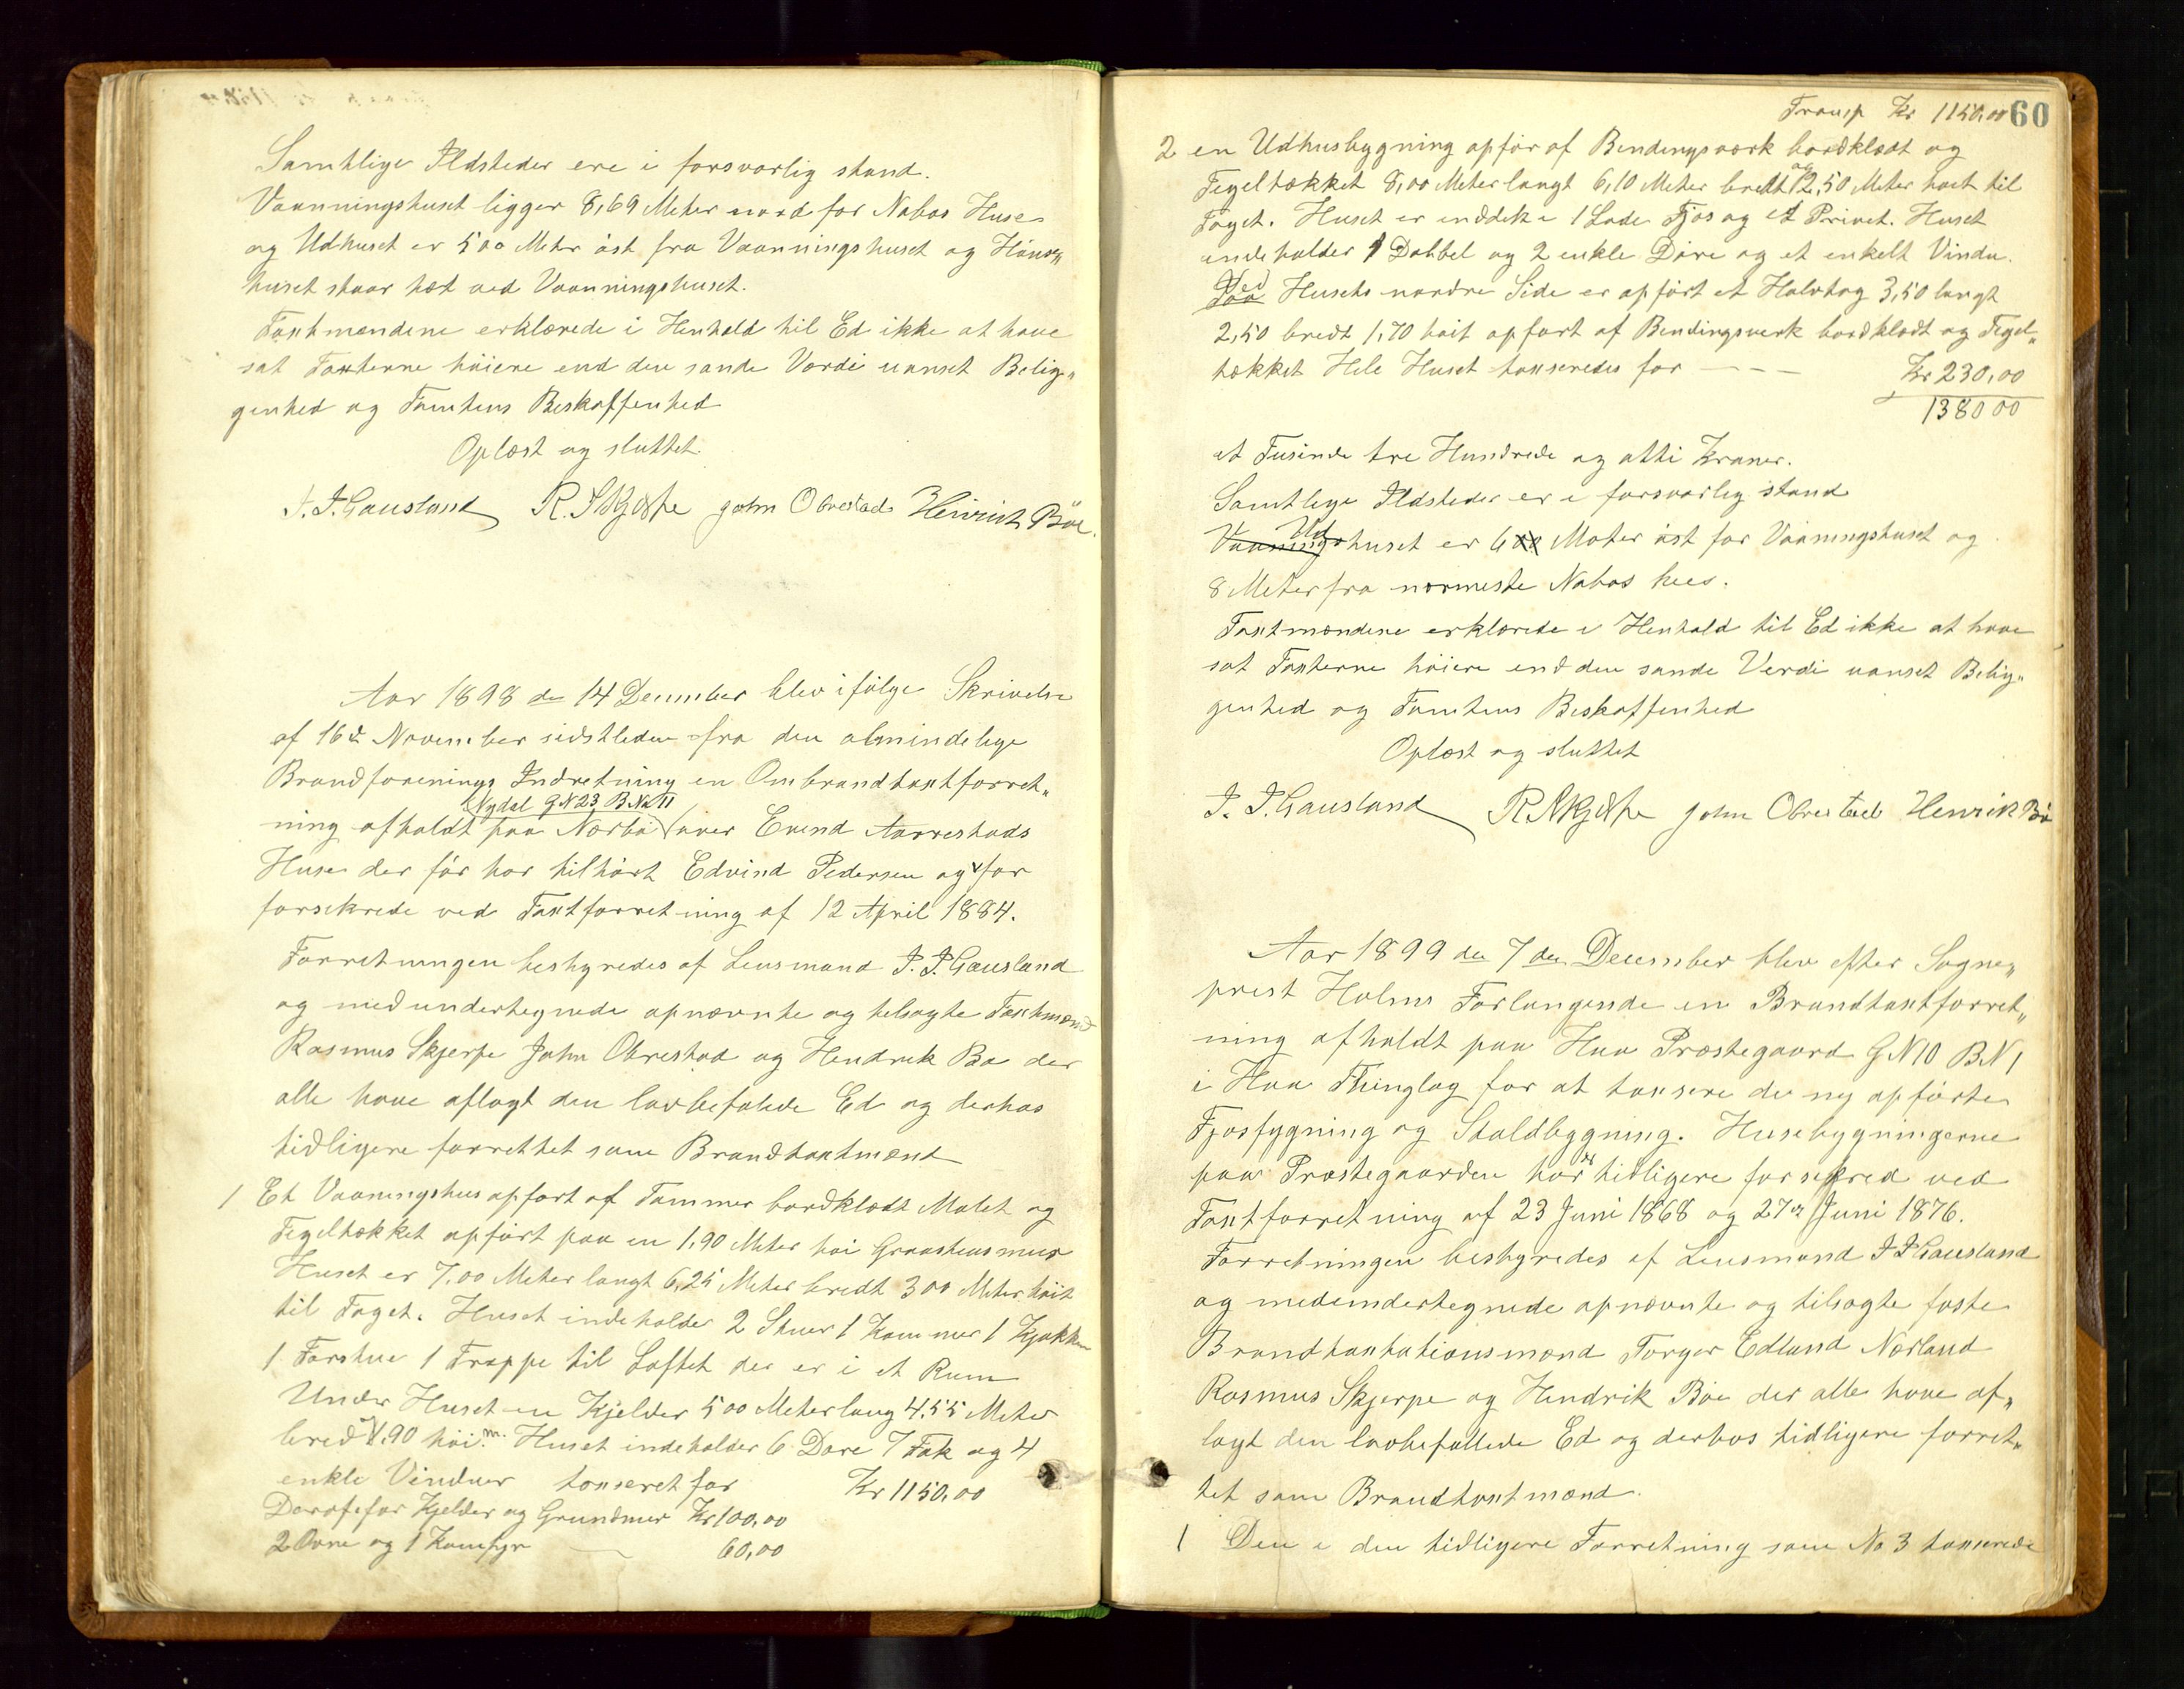 Samtlige Ildsteder ere i forsvarlig stand.
Vaanningshuset ligger 8,69 Meter nord for Nabos Huse
og Udhuset er 500 Meter øst fra Vaanningshuset og Høns„
huset staar tæt ved Vaanningshuset.
Taxtmændene erklærede i Henhold til Ed ikke at have
sat Taxterne høiere end den sande Værdi uanset Belig„
genhed og Tomtens Beskaffenhed
Oplæst og sluttet.
J. J. Gausland R. Skjerpe John Obrestad Heinrich Böe.
Aar 1898 den 14 December blev ifølge Skrivelse
af 16d November sidstleden fra den almindelige
Brandforenings Indretning en Ombrandtaxtforret„
Nydal G N 23 B. No 11
ning afholdt paa Nærbø over Evend Aarrestads
Huse der før har tilhørt Edvind Pedersen og for
forsikrede ved Taxtforretning af 12 April 1884.
Forretningen bestyredes af Lensmand J. J. Gausland
og medundertegnede opnævnte og tilsagte Taxtmænd
Rasmus Skjerpe John Obrestad og Hendrik Bø der
alle have aflagt den lovbefalede Ed og derhos
tidligere forrettet som Brandtaxtmænd
1 Et Vaaningshus opført af Tømmer bordklædt Malet og
Tegeltækket opført paa en 1,90 Meter høi Graastensmur
Huset er 7,00 Meter langt 6,25 Meter bredt 300 Meter høit
til Taget. Huset indeholder 2 Stuer 1 Kammer 1 Kjøkken
1 Forstue 1 Trappe til Loftet der er i et Rum
Under Huset en Kjelder 500 Meter lang 4,55 Meter
bred og 1.90 høi m. Huset indeholder 6 Døre 7 Fak og 4
enkle Vinduer taxseret for Kr 1150,00
Deraf for Kjelder og Grundmur Kr 100,00
2 Ovne og 1 Komfyr 60,00
Transp Kr 1150,00 60
2 en Udhusbygning opfør af Bindingsværk bordklædt og
Tegeltækket 8,00 Meter langt 6,10 Meter bredt og 2,50 Meter høit til
Taget. Huset er inddelt i 1 Lade Fjøs og et Privet. Huset
indeholder 1 Dobbel og 2 enkle Døre og et enkelt Vindu.
Ved
Paa Husets nordre Side er opført et Halvtag 3,50 langt
2,50 bredt 1,70 høit opført af Bindingsverk bordklædt og Tegel„
tækket Hele Huset taxseredes for - - - Kr 230,00
1380 00
et Tusinde tre Hundrede og otti Kroner.
Samtlige Ildsteder er i forsvarlig stand
Ud
Vaaningshuset er 600 Meter øst for Vaaningshuset og
8 Meter fra nærmeste Nabos hus.
Taxtmændene erklærede i Henhold til Ed ikke at have
sat Taxterne høiere end den sande Verdi uanset Belig„
genhed og Tomtens Beskaffenhed
Oplæst og sluttet
J. J. Gausland R Skjerpe John Obrestad Henrik Bö
Aar 1899 den 7 den December blev efter Sogne„
prest Holms Forlangende en Brandtaxtforret„
ning afholdt paa Haa Præstegaard G N 10 B. N 1
i Haa Thinglag for at taxsere de ny opførte
Fjøsfygning og Staldbygning. Husebygningerne
paa Præstegaarden har tidligere forsikred ved
Taxtforretning af 23 Juni 1868 og 27de Juni 1876.
Forretningen bestyredes af Lensmand J J Gausland
og medundertegnede opnævnte og tilsagte faste
Brandtaxtationsmænd Torger Edland Nærland
Rasmus Skjerpe og Hendrik Bøe der alle have af„
lagt den lovbefallede Ed og derhos tidligere forret„
tet som Brandtaxtmænd.
1 Den i den tidligere Forretning som No 3 taxserede